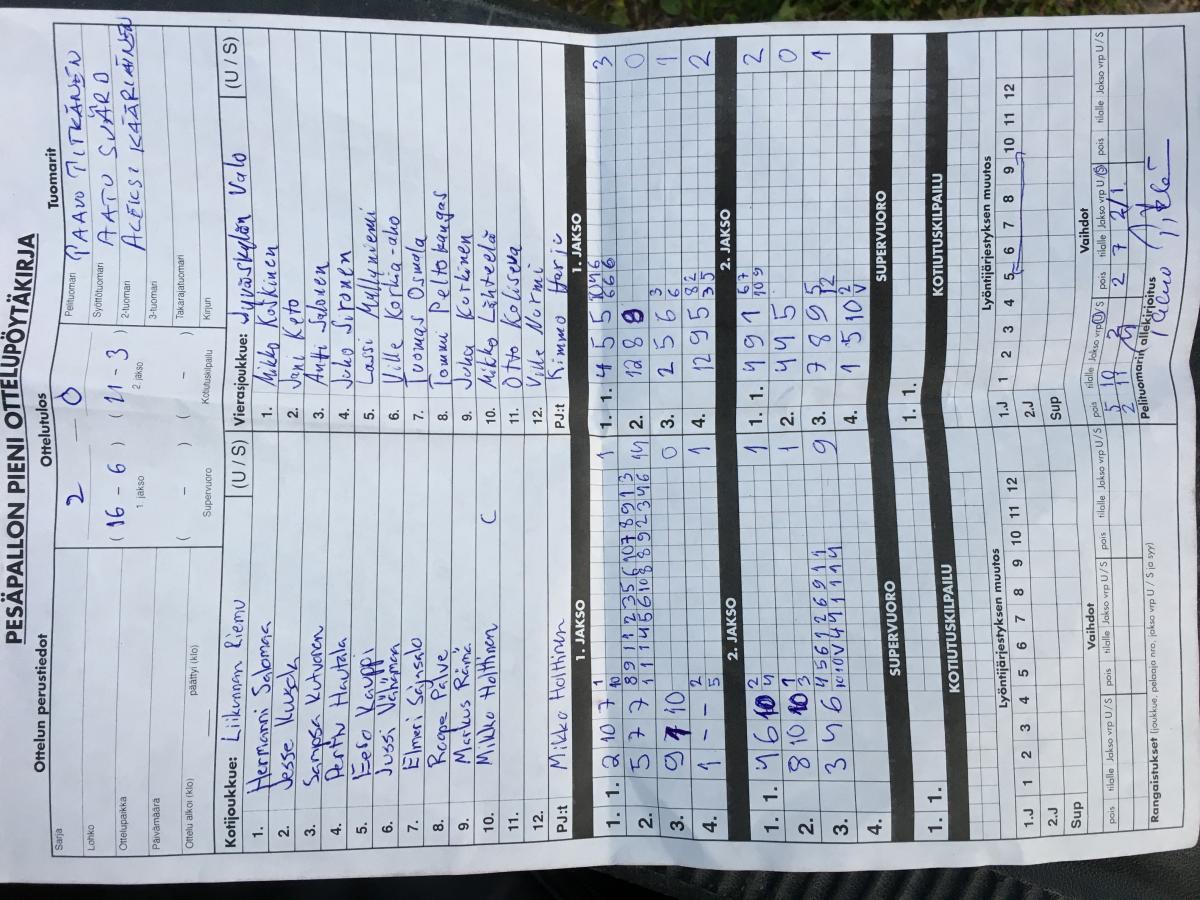 PESÄPALLON PIENI OTTELUPÖYTÄKIRJA
Ottelun perustiedot
Ottelutulos
Tuomarit
Sarja
Lohko
Ottelupaikka
Päivämäärä
Ottelu alkoi (klo) päättyi (klo)
2 — 0
(16 - 6) (21 - 3)
1. jakso 2. jakso
( - ) ( - )
Supervuoro Kotiutuskilpailu
Pelituomari PAAVO PITKÄNEN
Syöttötuomari AATU SVÄRD
2-tuomari ALEKSI KÄÄRIÄINEN
3-tuomari
Takarajatuomari
Kirjuri
Kotijoukkue: Liikunnan Riemu (U / S)
1. Hermanni Salomaa
2. Jesse Kuusch
3. Sampsa Kutvonen
4. Perttu Hautala
5. Eero Kauppi
6. Jussi Välimaa
7. Elmeri Sajasalo
8. Roope Palve
9. Markus Rämä
10. Mikko Holttinen C
11.
12.
PJ:t Mikko Holttinen
Vierasjoukkue: Jyväskylän Valo (U / S)
1. Mikko Kokkinen
2. Jani Keto
3. Antti Salonen
4. Juho Sironen
5. Lassi Myllyniemi
6. Ville Korkia-aho
7. Tuomas Osmala
8. Tommi Peltokangas
9. Juha Korkinen
10. Mikko Lähteelä
11. Otto Korissena
12. Ville Nurmi
PJ:t Kimmo Harju
1. JAKSO
1. 1. 2 10 7 1 10 1
2. 5 7 7 8 9 1 1 2 3 5 6 10 7 8 9 1 3 14
3. 9 1 10 0
4. 1 - - 2 5 1
2. JAKSO
1. 1. 4 6 10 2 4 1
2. 8 10 10 1 3 1
3. 3 4 6 4 5 6 1 2 6 9 1 1 9
4.
SUPERVUORO
1. 1.
KOTIUTUSKILPAILU
1. JAKSO
1. 1. 4 5 5 10 4 6 6 6 6 3
2. 12 8 9 0
3. 2 5 6 3 6 1
4. 12 9 5 8 2 3 5 2
2. JAKSO
1. 1. 4 9 1 6 7 10 9 2
2. 4 4 5 0
3. 7 8 9 5 12 1
4. 1 5 10 2 V
SUPERVUORO
1. 1.
KOTIUTUSKILPAILU
Lyöntijärjestyksen muutos
1.J 1 2 3 4 5 6 7 8 9 10 11 12
2.J
Sup
Vaihdot
pois tilalle Jakso vrp U / S pois tilalle Jakso vrp U / S pois tilalle Jakso vrp U / S
Rangaistukset (joukkue, pelaaja nro, jakso vrp U / S ja syy)
Lyöntijärjestyksen muutos
1.J 1 2 3 4 5 6 7 8 9 10 11 12
2.J
Sup
Vaihdot
pois tilalle Jakso vrp U / S pois tilalle Jakso vrp U / S pois tilalle Jakso vrp U / S
5 10 2 2 7 2/1
2 11
Pelituomarin allekirjoitus